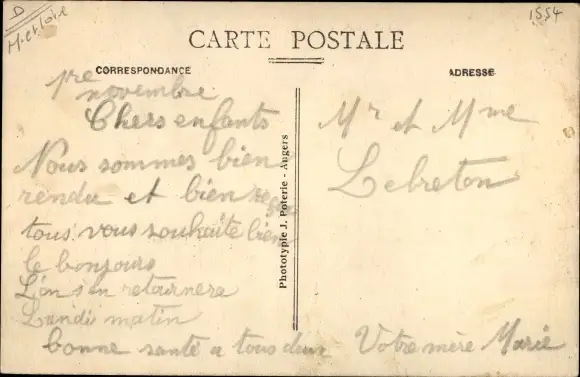 D
M-et Loire
1554
CARTE POSTALE
CORRESPONDANCE
ADRESSE
1re
novembre
Chers enfants
Nous sommes bien
rendu et bien
tous vous souhaite bien
le bonjours
L'on s'en retournera
Lundis matin
bonne santé a tous deux
Votre mère Marie
Phototypie J. Poterie - Angers
Mr et Mme
Lebreton